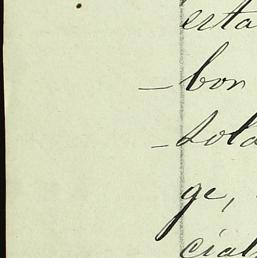 esta
– bon
– sola
ge,
cial